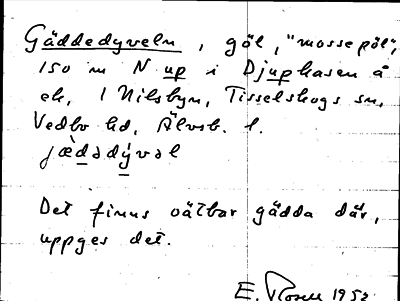 Gäddedyveln, göl, "mossepöl",
150 m N up i Djuphasen å
ek, 1 Nilsbyn, Tisselskogs sn,
Vedbo hd, Älvsb. l.
jæ̀dədývəl
Det finns oätbar gädda där,
uppges det.
E. Rosell 1952